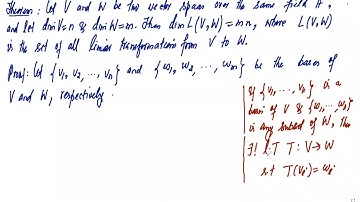 Theorem: Let V and W be two vector spaces over the same field F,
and let dim V = n & dim W = m. Then dim L(V, W) = mn, where L(V, W)
is the set of all linear transformations from V to W.
Proof: Let {v₁, v₂, ..., vₙ} and {w₁, w₂, ..., wₘ} be the bases of
V and W, respectively.
If {v₁, ..., vₙ} is a
basis of V & {w₁, ..., wₙ}
is any subset of W, then
∃! L.T T: V → W
s.t T(vᵢ) = wᵢ